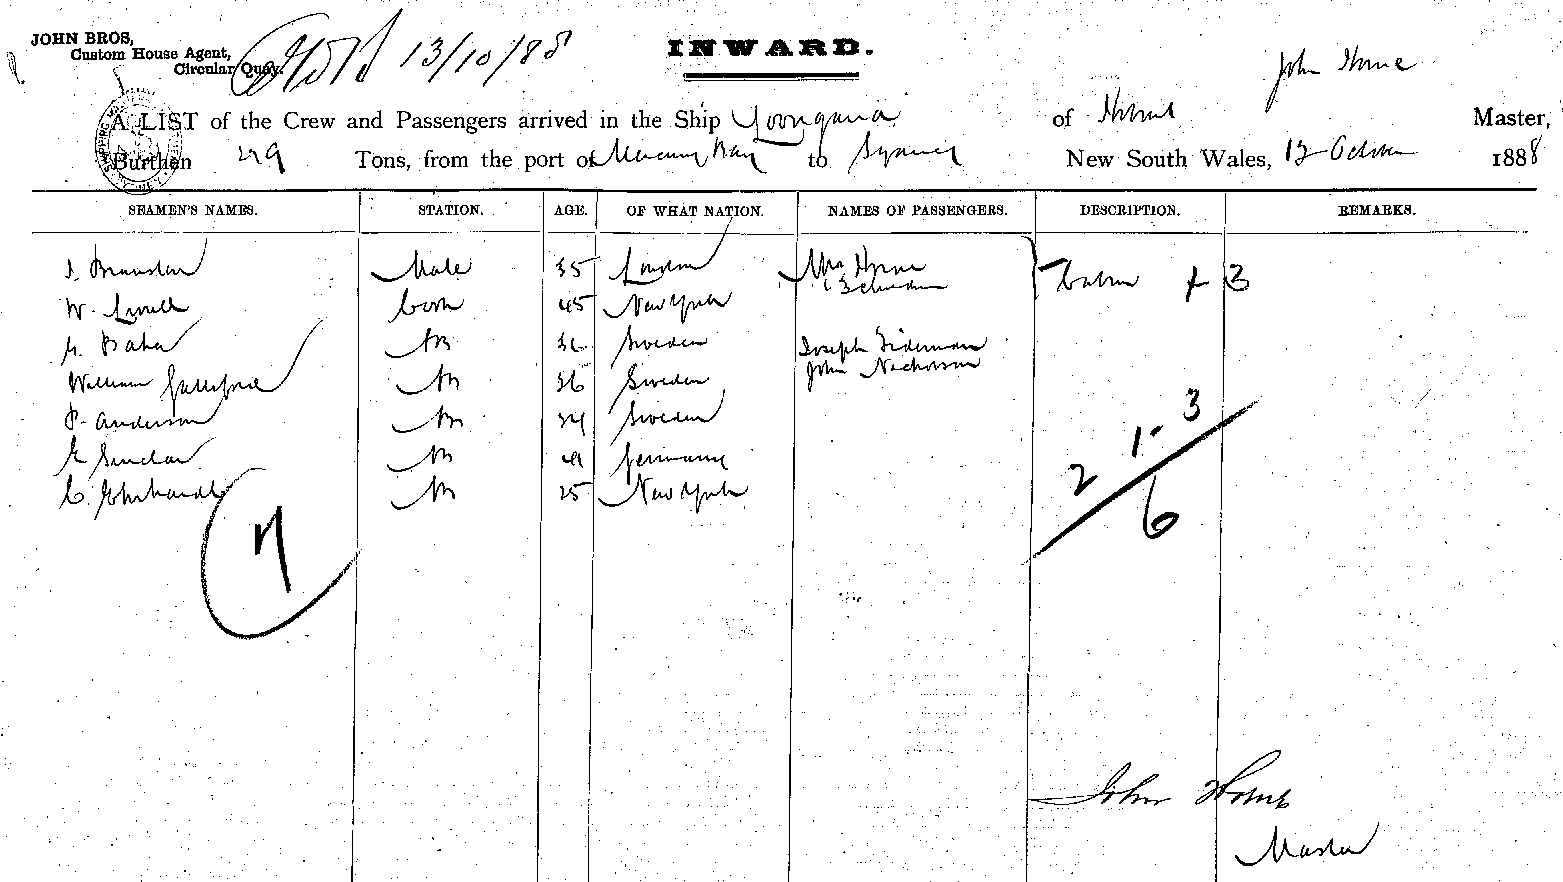 JOHN BROS,
Custom House Agent,
Circular Quay.
13/10/88
INWARD.
John Horne
A LIST of the Crew and Passengers arrived in the Ship Loongana of Hobart Master,
Burthen 229 Tons, from the port of Mercury Bay to Sydney New South Wales, 12 October 1888
SEAMEN'S NAMES. STATION. AGE. OF WHAT NATION. NAMES OF PASSENGERS. DESCRIPTION. REMARKS.
Mate 35 London Mrs Horne Cabin + 3
& 3 children
W. Cook 45 New York
Baker AB 36 Sweden Joseph
John
William AB 36 Sweden
P. Anderson AB 34 Sweden
Sinclair AB Germany
C. Ehrhardt AB 25 New York
7
2 1 - 3
6
John Horne
Master